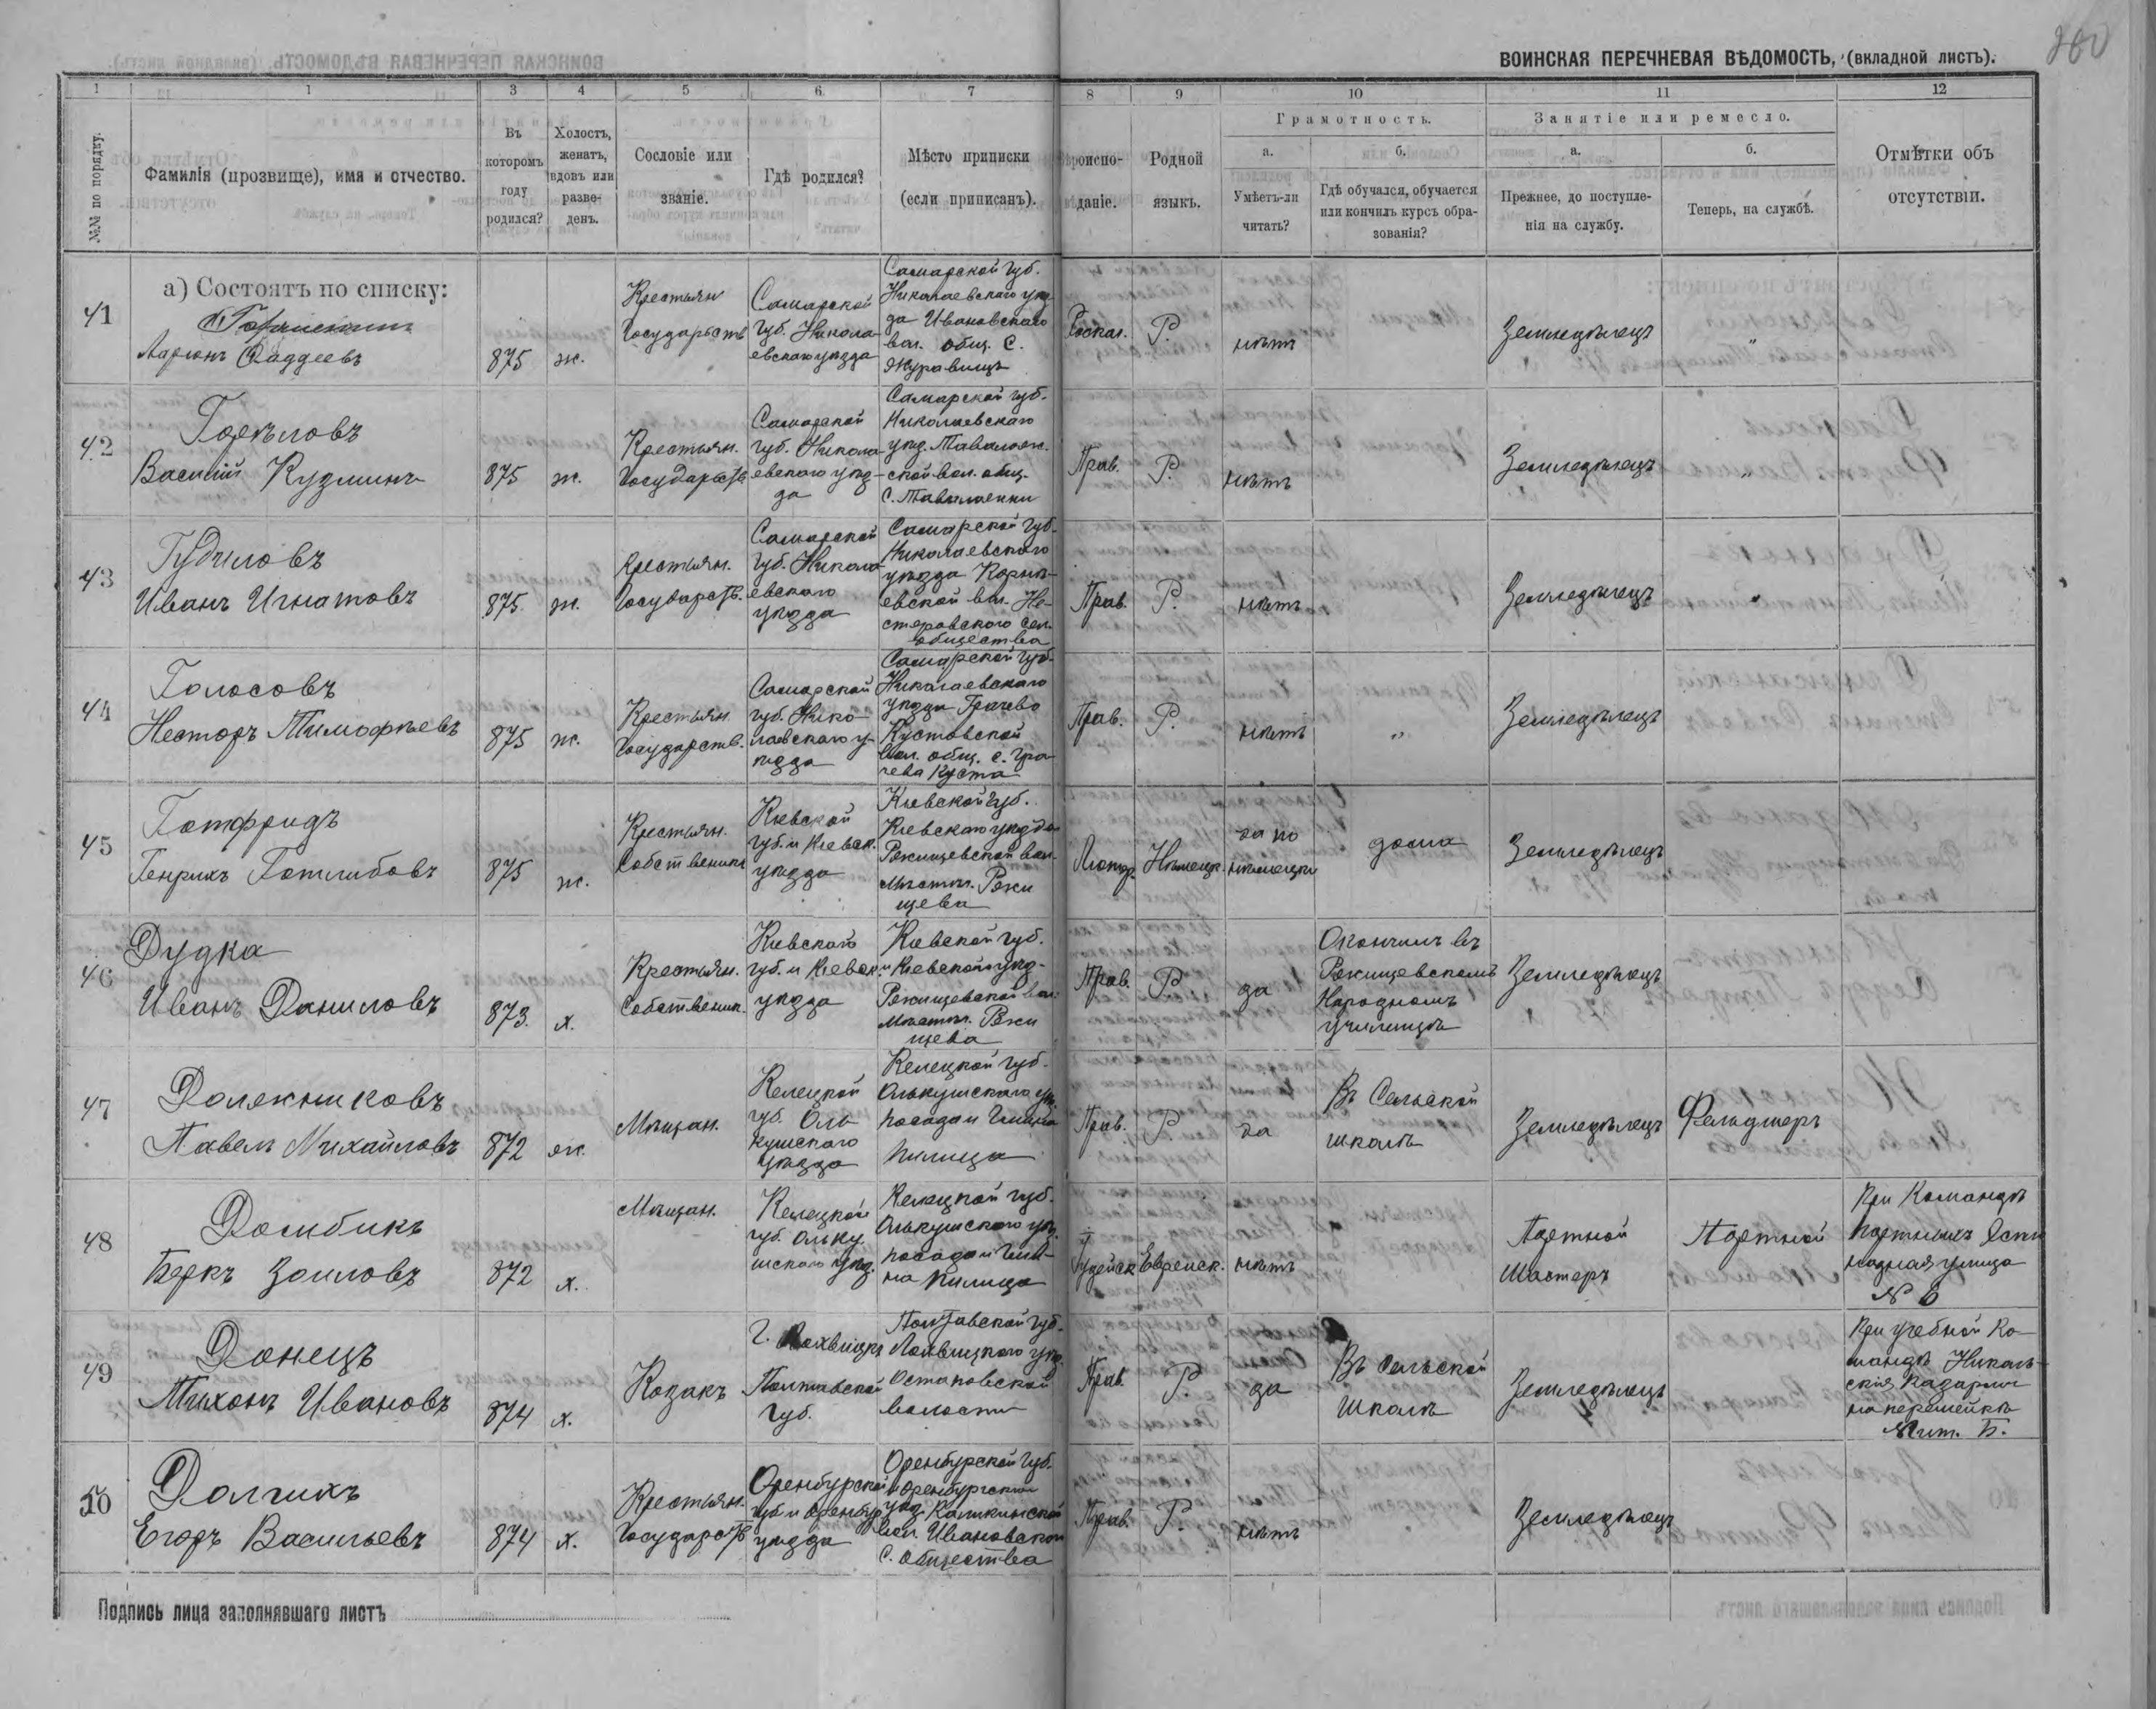 260
ВОИНСКАЯ ПЕРЕЧНЕВАЯ ВѢДОМОСТЬ, (вкладной листъ).
1 1 3 4 5 6 7 8 9 10 11 12
№№ по порядку.
Фамилія (прозвище), имя и отчество.
Въ которомъ году родился?
Холостъ, женатъ, вдовъ или разведенъ.
Сословіе или званіе.
Гдѣ родился?
Мѣсто приписки (если приписанъ).
Вѣроисповѣданіе.
Родной языкъ.
Грамотность.
а. Умѣетъ-ли читать?
б. Гдѣ обучался, обучается или кончилъ курсъ образованія?
Занятіе или ремесло.
а. Прежнее, до поступленія на службу.
б. Теперь, на службѣ.
Отмѣтки объ отсутствіи.
а) Состоятъ по списку:
41
Ларіонъ Фаддеевъ
875
ж.
Крестьян
Государств
Самарской
Губ. Никола-
евскаго уѣзда
Самарской Губ.
Николаевскаго уѣз
да Ивановскаго
вол. общ. С.
Раскол.
Р.
нѣтъ
Земледѣлецъ
"
42
Горѣловъ
Василій Кузминъ
875
ж.
Крестьян.
Государств
Самарской
губ. Никола
евскаго уѣз-
да
Самарской губ.
Николаевскаго
уѣз. Таволжен.
ской вол. общ.
С. Таволженки
Прав.
Р.
нѣтъ
Земледѣлецъ
"
43
Гудиловъ
Иванъ Игнатовъ
875.
ж.
Крестьян.
Государств.
Самарской
губ. Никола
евскаго
уѣзда
Самарской Губ.
Николаевского
уѣзда Корнѣ-
евской вол. Не-
стеровского Сел.
общества
Прав.
Р.
нѣтъ
Земледѣлецъ
"
44
Голосовъ
Несторъ Тимофѣевъ
875
ж.
Крестьян.
Государств.
Самарской
губ. Нико
лаевскаго у-
ѣзда
Самарской губ.
Николаевскаго
уѣзда Грачево
Кустовской
вол. общ. с. Гра
чева Куста
Прав.
Р.
нѣтъ
"
Земледѣлецъ
45
Готфридъ
Генрихъ Готлибовъ
875
ж.
Крестьян.
Собственник
Кіевской
губ. и Кіевск.
уѣзда
Кіевской Губ.
Кіевскаго уѣзда
Рожищевской вол.
Мѣстеч. Рожи
щева
Лютер.
Нѣмецк.
да по
нѣмецки
дома
Земледѣлецъ
46
Дудка
Иванъ Даниловъ
873.
х.
Крестьян.
Собственник.
Кіевского
губ. и Кіевск.
уѣзда
Кіевской губ.
и Кіевского уѣз-
Рожищевской вол.
Мѣстеч. Рожи
щева
Прав.
Р.
да
Окончилъ въ
Рожищевскомъ
Народномъ
училищѣ
Земледѣлецъ
47
Должниковъ
Павелъ Михайловъ
872
ж.
Мѣщан.
Келецкой
губ. Оль
кушского
уѣзда
Келецкой губ.
Олькушского уѣз.
посада и Гмина
Пилица
Прав.
Р.
да
Въ Сельской
школѣ
Земледѣлецъ
Фельдшеръ
48
Домбикъ
Беркъ Зоиловъ
872
х.
Мѣщан.
Келецкой
губ. Ольку
шского уѣз.
Келецкой губ.
Олькушского уѣз.
посада и Гми-
на Пилица
Іудейск.
Еврейск.
нѣтъ
Портной
Мастеръ
Портной
При Командѣ
портныхъ
улица
№ 6
49
Донецъ
Тихонъ Ивановъ
874
х.
Козакъ
Г. Лохвицы
Полтавской
Губ.
Полтавской Губ.
Лохвицкого уѣз.
Остаповской
волости
Прав.
Р.
да
Въ сельской
школѣ
Земледѣлецъ
При учебной Ко-
мандѣ Николь-
скія Казармы
на перешейкѣ
Лит. Б.
50
Долгихъ
Егоръ Васильевъ
874
х.
Крестьян.
Государств
Оренбурской
губ. и Оренбур
уѣзда
Оренбурской Губ.
и Оренбургскаго
уѣз.
вол. Ивановскаго
С. общества
Прав.
Р.
нѣтъ
Земледѣлецъ
Подпись лица заполнявшаго листъ